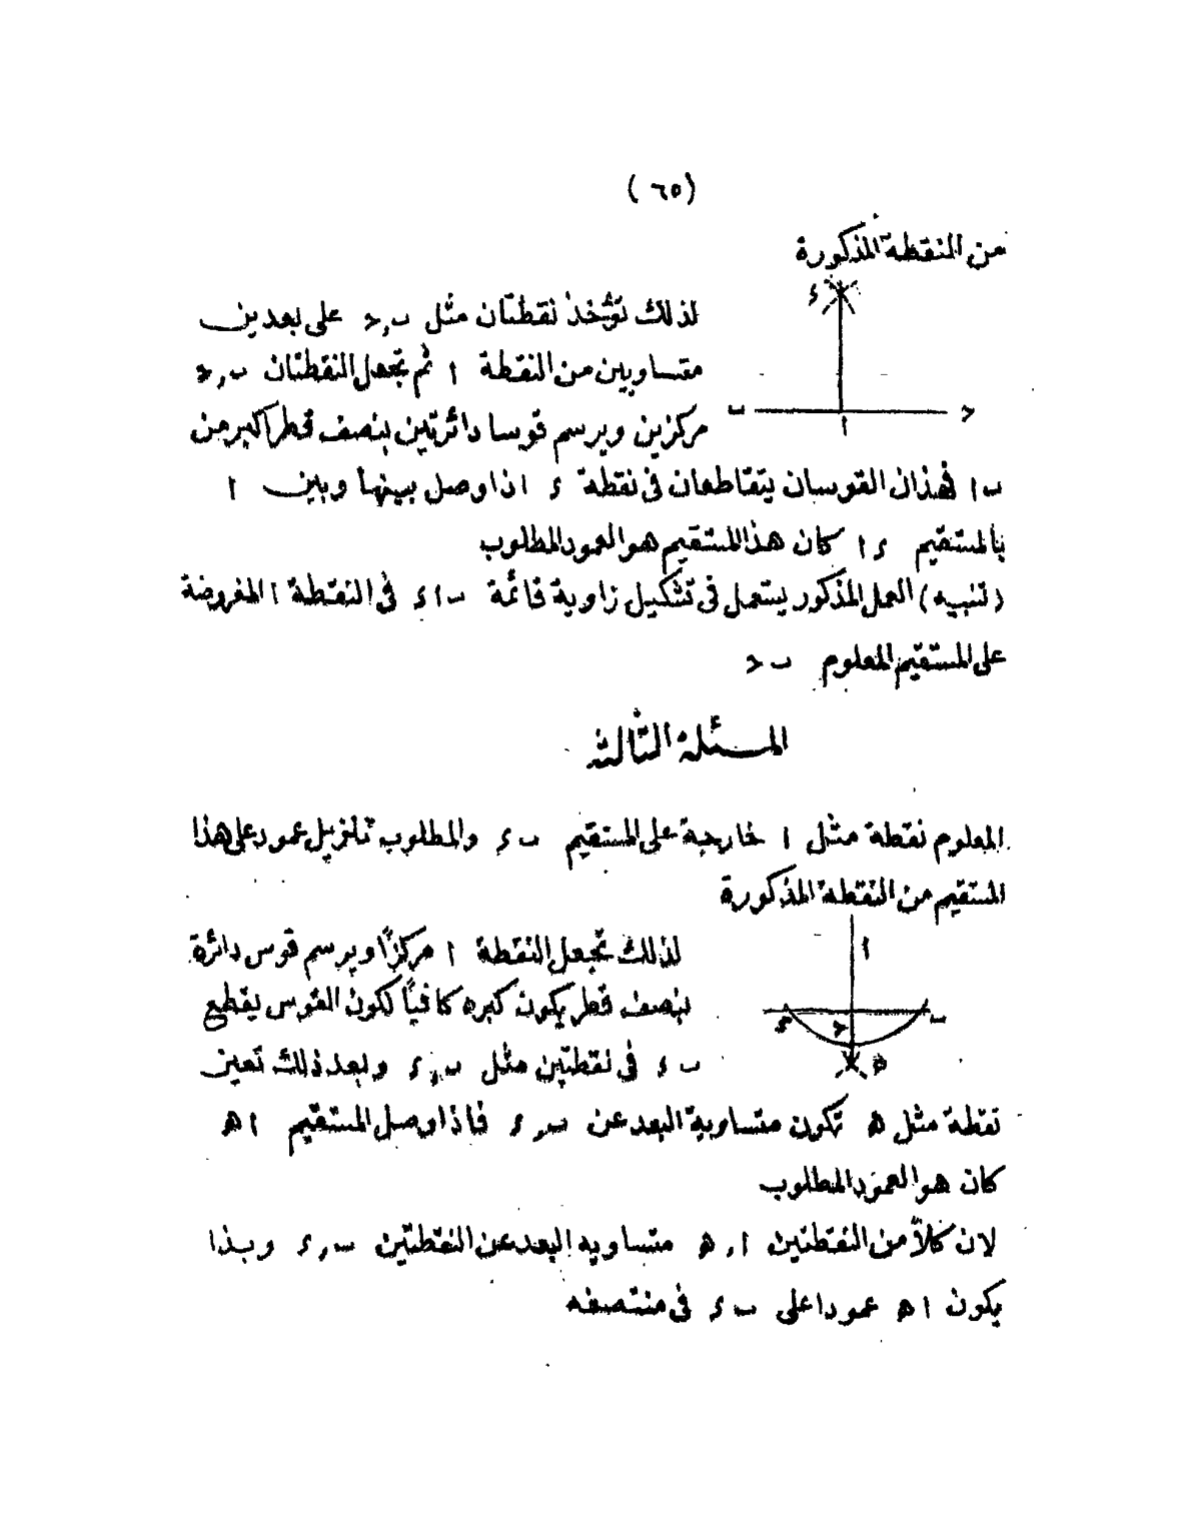 (٦٥)
من النقطة المذكورة
لذلك تؤخذ نقطتان مثل ب , ح على بعدين
متساويين من النقطة ا ثم تجعل النقطتان ب , ح
مركزين ويرسم قوسا دائرتين بنصف قطر اكبر من
ب ا فهذان القوسان يتقاطعان فى نقطة ء اذا وصل بينها وبين ا
بالمستقيم ء ا كان هذا المستقيم هو العمود المطلوب
(تنبيه) العمل المذكور يستعمل فى تشكيل زاوية قائمة ب ا ء فى النقطة ا المفروضة
على المستقيم المعلوم ب ح
ء
ب
ا
ح
المسئلة الثالثة
المعلوم نقطة مثل ا خارجية على المستقيم ب ء والمطلوب تنزيل عمود على هذا
المستقيم من النقطة المذكورة
لذلك تجعل النقطة ا مركزًا ويرسم قوس دائرة
بنصف قطر يكون كبره كافيًا لكون القوس يقطع
ب ء فى نقطتين مثل ب , ء وبعد ذلك تعين
نقطة مثل ه تكون متساوية البعد عن ب , ء فاذا وصل المستقيم ا ه
كان هو العمود المطلوب
لان كلاًّ من النقطتين ا , ه متساويه البعد عن النقطتين ب , ء وبذا
يكون ا ه عمودا على ب ء فى منتصفه
ا
ء
ح
ب
ه